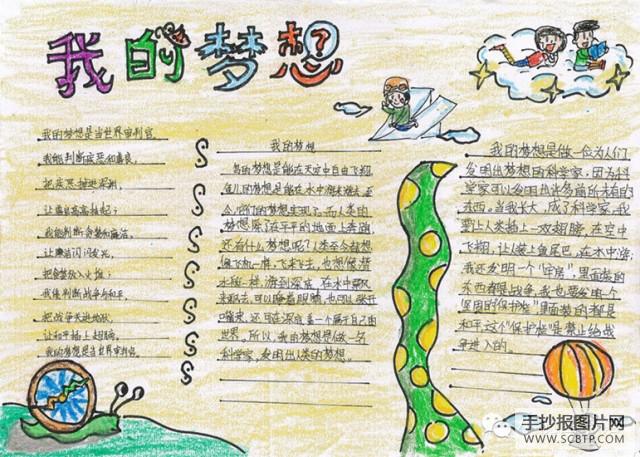 我的梦想?
我的梦想是当世界审判官。
我能判断凶恶和善良,
把凶恶抛进泥潮,
让善良高高挂起?
我能判断贪婪和廉洁,
让廉洁闪闪发光,
把贪婪投入火堆;
我能判断战争与和平,
把战争丢进地狱,
让和平插上翅膀。
我的梦想是当世界审判官。
我的梦想
鸟的梦想是能在天空中自由飞翔,
鱼儿的梦想是能在水中游来游去,至
今,它们的梦想实现了。而人类的
梦想除了在平平的地面上奔跑
还有什么梦想呢?人类至今都想
像飞机一样,飞来飞去,也想像潜
水艇一样,游到深底,在水中
来那去,可以睁着眼睛,也可以张开
嘴来,还可在深底盖一个属于自己的
世界。所以,我的梦想是做一名
科学家,发明出人类的梦想。
我的梦想是做一位为人们
发明出梦想的科学家,因为科
学家可以发明很多前所未有的
东西,当我长大,成了科学家,我
要让人类插上一双翅膀,在空中
飞翔,让人装上鱼尾巴,在水中游;
我还发明一个"牢房",里面装的
东西都是战争,我也要发明个
"坚固的保护舱"里面装的都是
和平,这个"保护舱"是禁止给战
争进入的。
手抄报图片网
WWW.SCBTP.COM